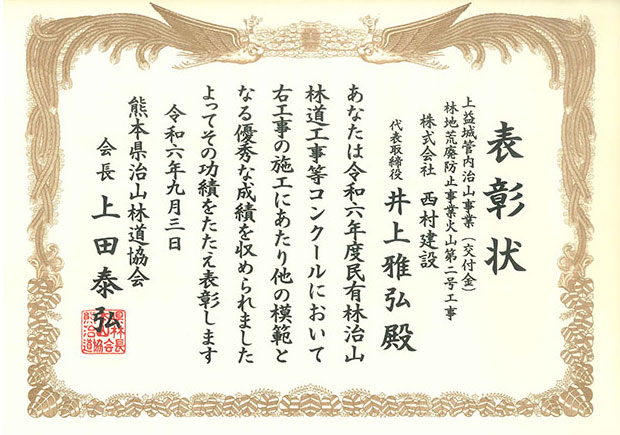 表彰状
上益城管内治山事業（交付金）
林地荒廃防止事業火山第二号工事
株式会社 西村建設
代表取締役 井上雅弘殿
あなたは令和六年度民有林治山
林道工事等コンクールにおいて
右工事の施工にあたり他の模範と
なる優秀な成績を収められました
よってその功績をたたえ表彰します
令和六年九月三日
熊本県治山林道協会
会長 上田泰弘